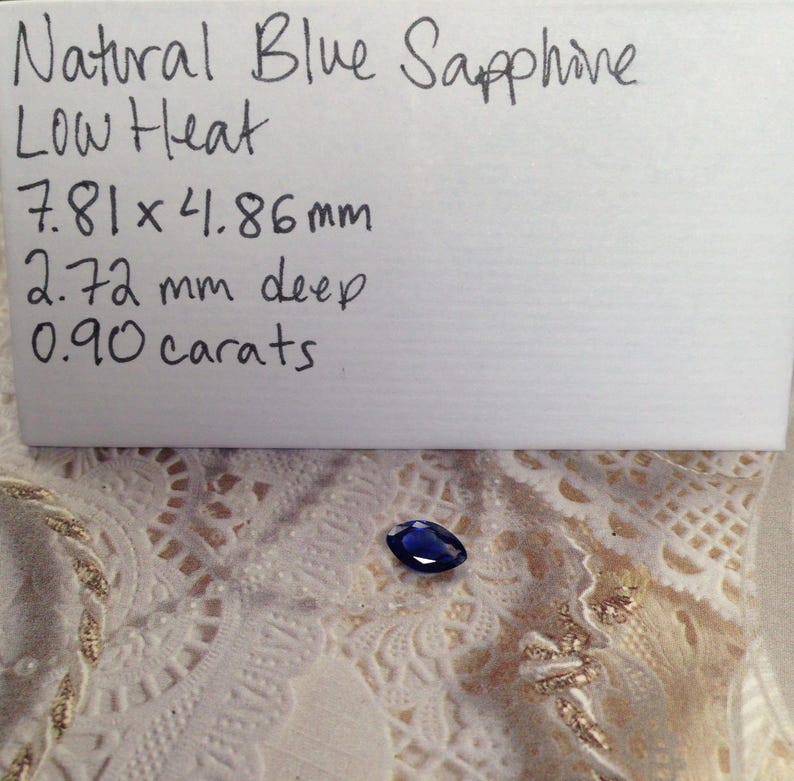 Natural Blue Sapphire
Low Heat
7.81 x 4.86 mm
2.72 mm deep
0.90 carats